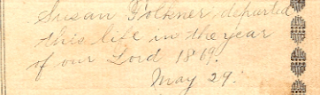 Susan Folkner, departed
this life in the year
of our Lord 1819.
May 29.